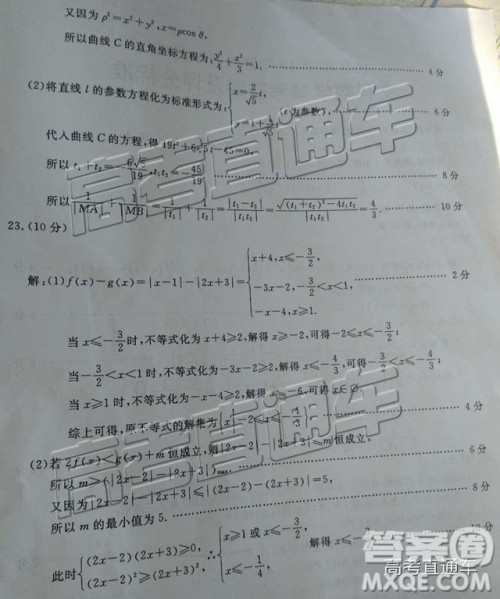 又因为 ρ²=x²+y²,x=ρcos θ,
所以曲线 C 的直角坐标方程为:y²/4+x²/3=1. 4 分
(2)将直线 l 的参数方程化为标准形式为:{x=2/√5 t, y=1+ /√5 t (t 为参数),
代入曲线 C 的方程,得 19t²+6√5 t-45=0,
所以 t₁+t₂=-6√5/19,t₁t₂=-45/19, 8 分
所以 1/|MA|+1/|MB|=1/|t₁|+1/|t₂|=|t₁-t₂|/|t₁t₂|=√((t₁+t₂)²-4t₁t₂)/|t₁t₂|=4/3. 10 分
23.(10 分)
解:(1)f(x)-g(x)=|x-1|-|2x+3|={x+4,x≤-3/2, -3x-2,-3/2<x<1, -x-4,x≥1. 2 分
当 x≤-3/2 时,不等式化为 x+4≥2,解得 x≥-2,可得-2≤x≤-3/2;
当-3/2<x<1 时,不等式化为-3x-2≥2,解得 x≤-4/3,可得-3/2<x≤-4/3;
当 x≥1 时,不等式化为-x-4≥2,解得 x≤-6,可得 x∈∅.
综上可得,原不等式的解集为 4 分
(2)若 2f(x)<g(x)+m 恒成立,则|2x-2|-|2x+3|≤m 恒成立,
所以 m≥(|2x-2|-|2x+3|)max, 6 分
又因为|2x-2|-|2x+3|≤|(2x-2)-(2x+3)|=5, 8 分
所以 m 的最小值为 5.
此时{(2x-2)(2x+3)≥0, (2x-2)²≥(2x+3)², ∴{x≥1 或 x≤-3/2, x≤-1/4, 解得 x≤-
高考直通车
高考直通车
高考直通车
答案圈